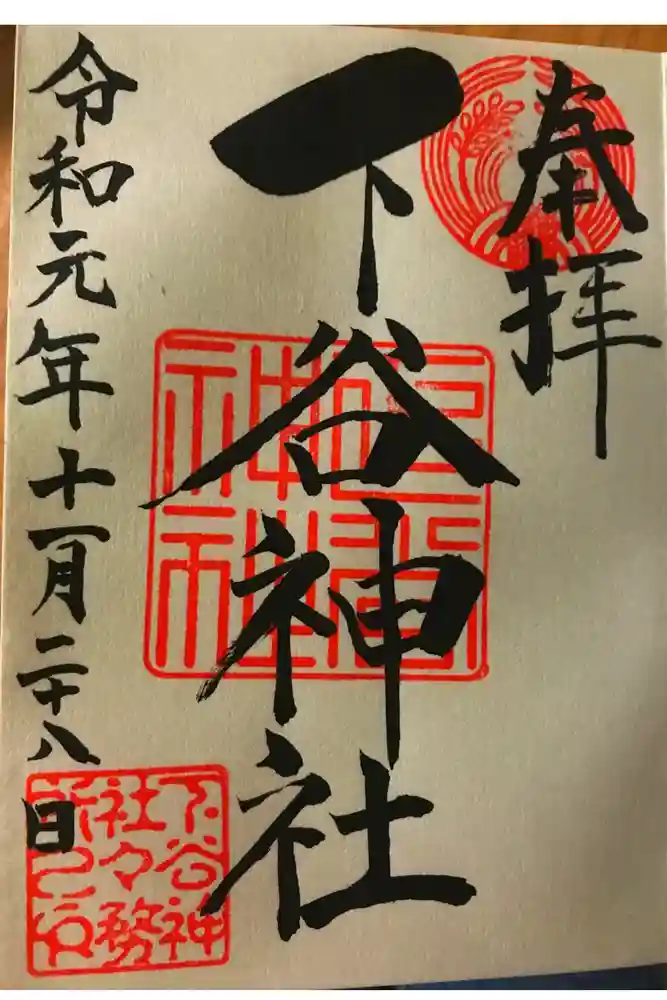 奉拝
下谷神社
令和元年十一月二十八日
下谷神
社々務
所之印